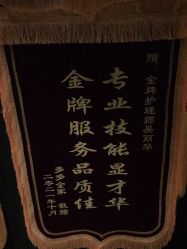 赠：金牌护理师吴丽华
专业技能显才华
金牌服务品质佳
多多全家 敬赠
二零二一年十月